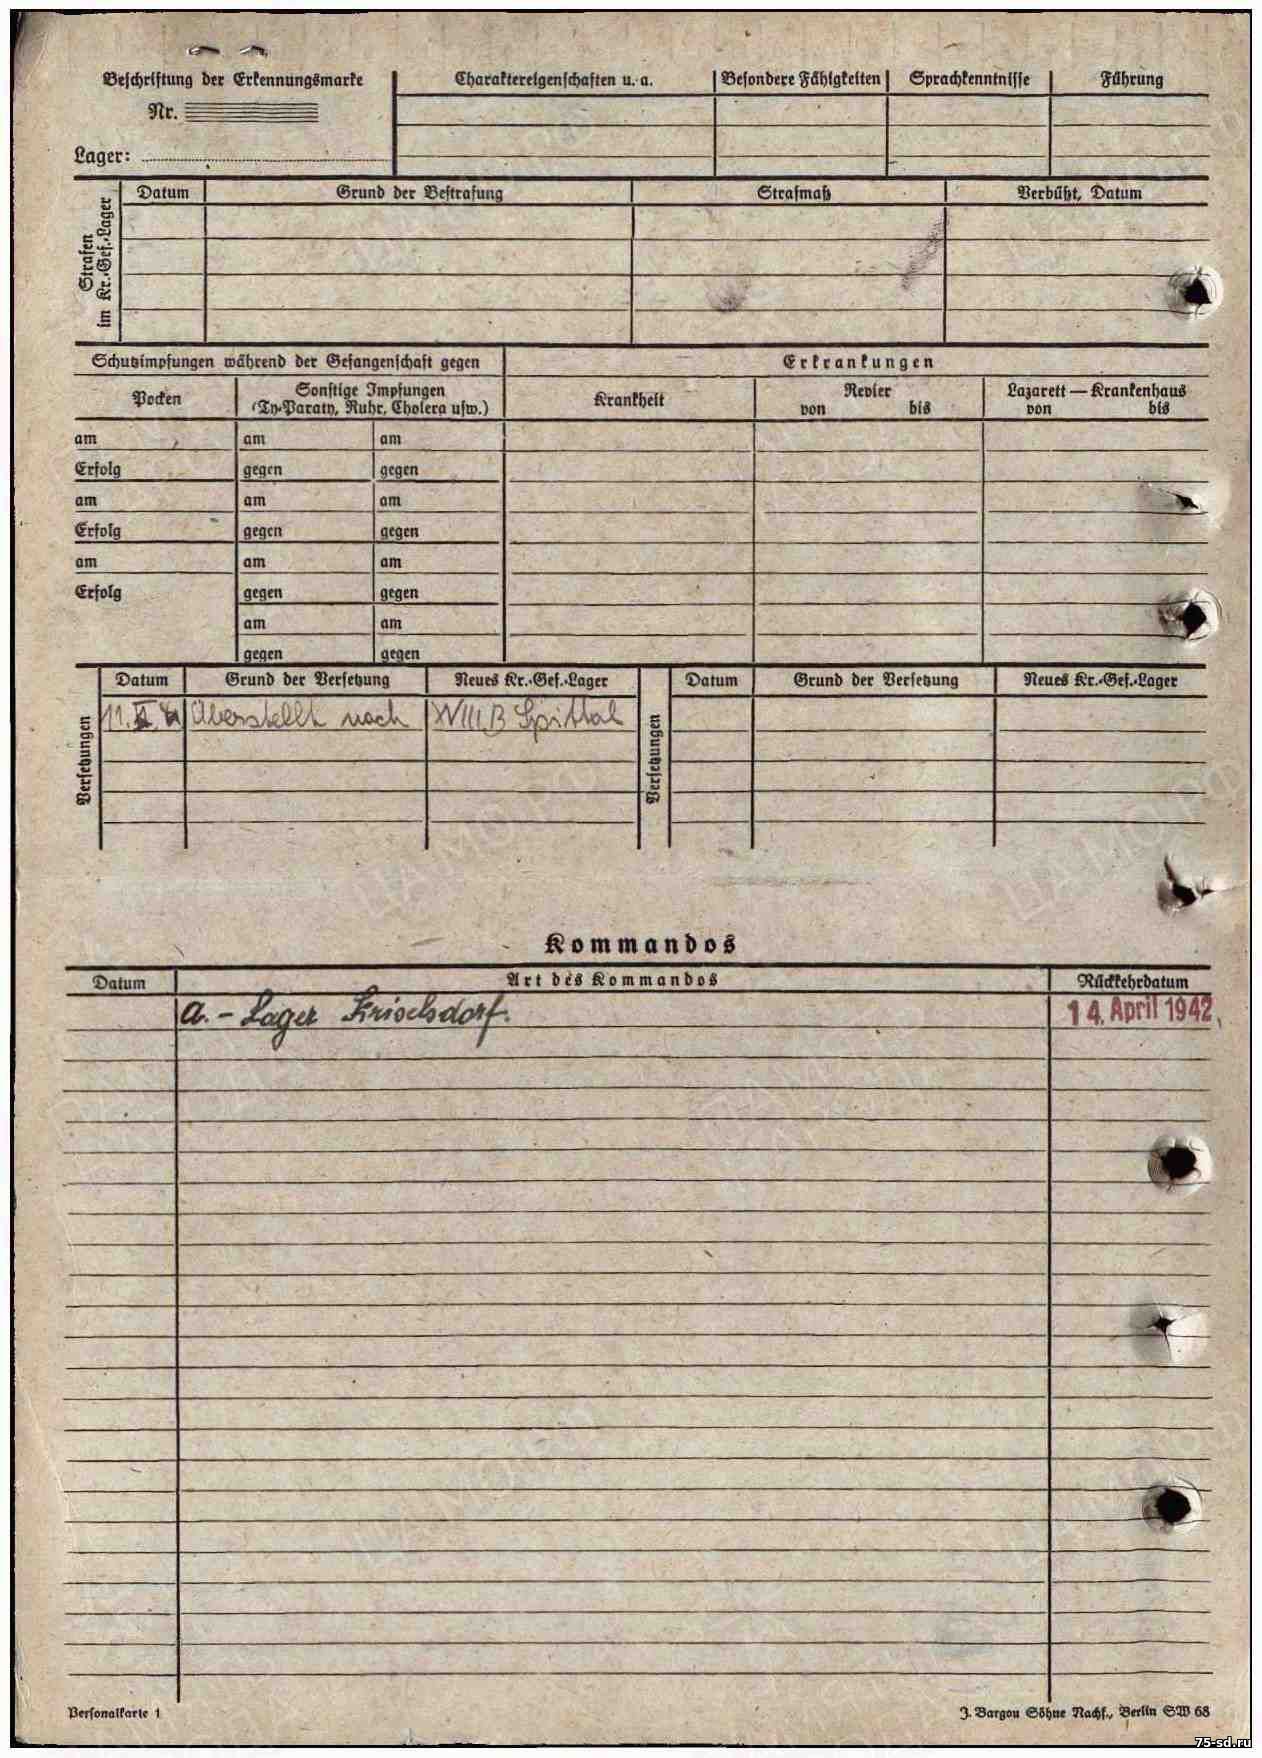 Beschriftung der Erkennungsmarke
Nr.
Lager:
Charaktereigenschaften u. a.
Besondere Fähigkeiten
Sprachkenntnisse
Führung
Strafen
im Kr.-Gef.-Lager
Datum
Grund der Bestrafung
Strafmaß
Verbüßt, Datum
Schutzimpfungen während der Gefangenschaft gegen
Erkrankungen
Pocken
Sonstige Impfungen
(Ty-Paraty, Ruhr, Cholera usw.)
Krankheit
Revier
von bis
Lazarett — Krankenhaus
von bis
am am am
Erfolg gegen gegen
am am am
Erfolg gegen gegen
am am am
Erfolg gegen gegen
am am
gegen gegen
Versetzungen
Datum Grund der Versetzung Neues Kr.-Gef.-Lager
11. Überstellt nach XVIII B Spittal
Versetzungen
Datum Grund der Versetzung Neues Kr.-Gef.-Lager
Kommandos
Datum Art des Kommandos Rückkehrdatum
a. - Lager 14. April 1942
Personalkarte 1
J. Bargou Söhne Nachf., Berlin SW 68
75-sd.ru